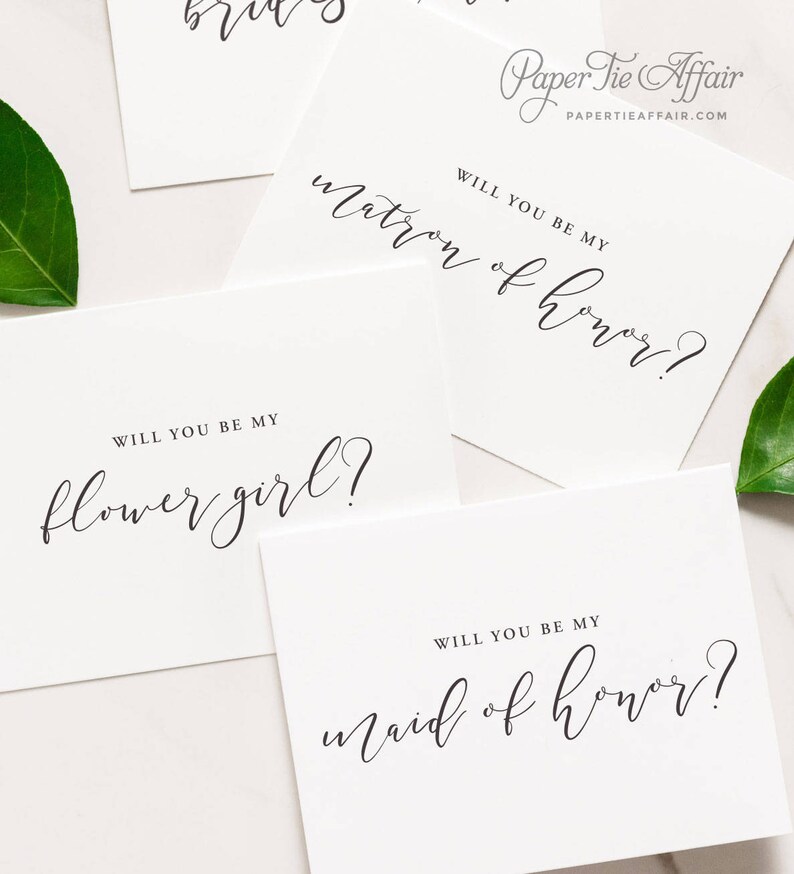 Paper Tie Affair
PAPERTIEAFFAIR.COM
WILL YOU BE MY
matron of honor?
WILL YOU BE MY
flower girl?
WILL YOU BE MY
maid of honor?